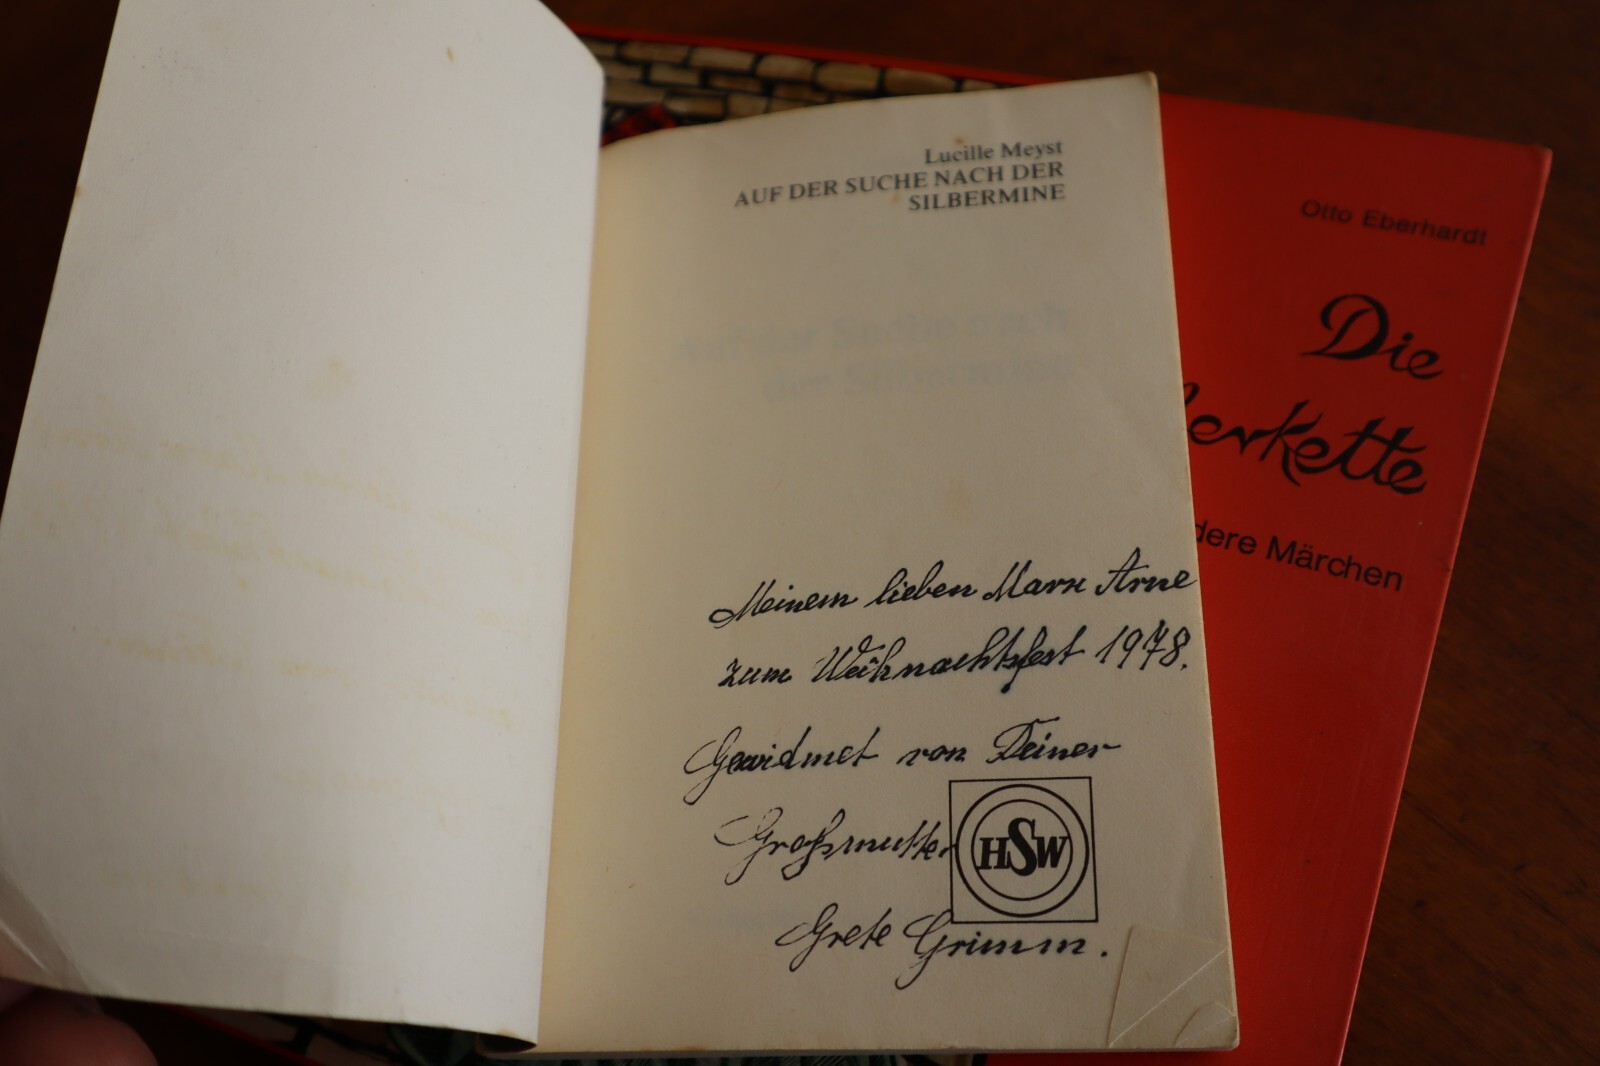 Lucille Meyst
AUF DER SUCHE NACH DER
SILBERMINE
Meinem lieben Mark Arne
zum Weihnachtsfest 1978.
Gewidmet von Deiner
Großmutter
HSW
Grete Grimm.
Otto Eberhardt
Die
erkette
dere Märchen